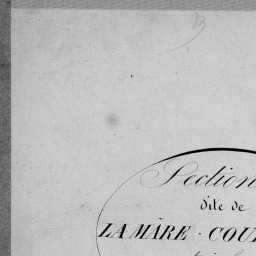 Section
dite de
LA MÂRE - COU